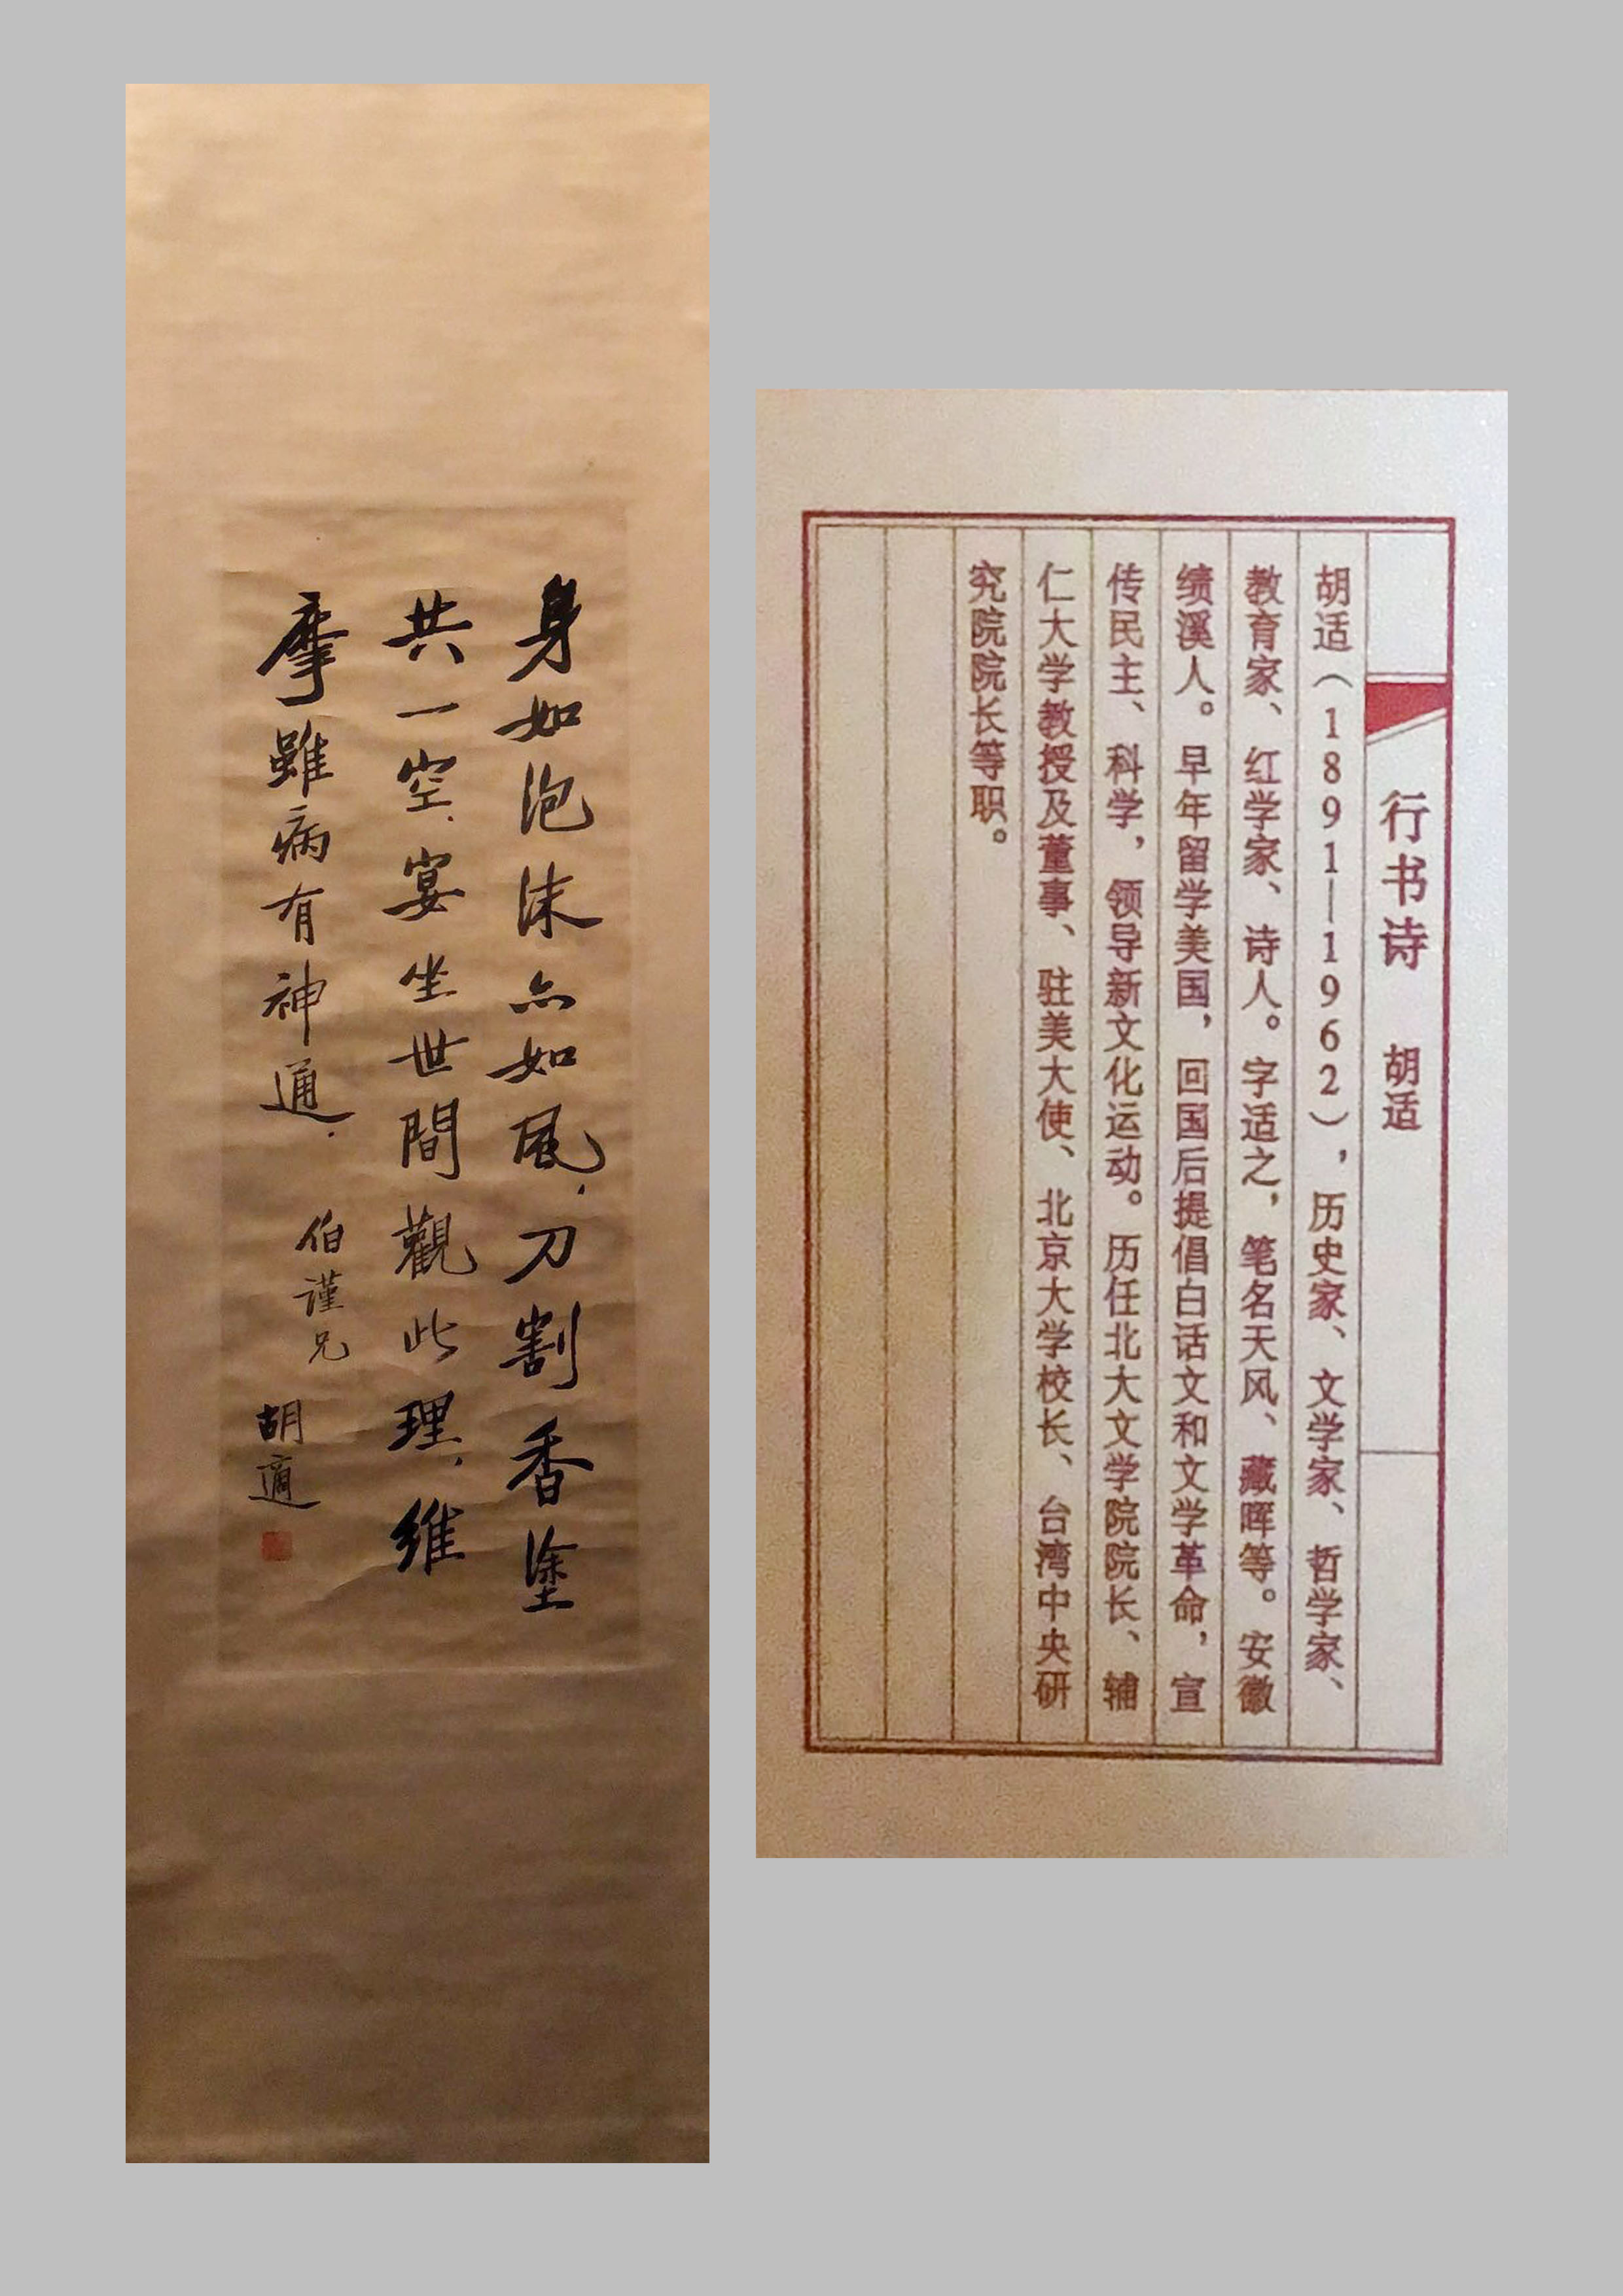 身如泡沫亦如風，刀割香塗
共一空，宴坐世間觀此理，維
摩雖病有神通．
伯謹兄
胡適
行书诗 胡适
胡适（1891—1962），历史家、文学家、哲学家、
教育家、红学家、诗人。字适之，笔名天风、藏晖等。安徽
绩溪人。早年留学美国，回国后提倡白话文和文学革命，宣
传民主、科学，领导新文化运动。历任北大文学院院长、辅
仁大学教授及董事、驻美大使、北京大学校长、台湾中央研
究院院长等职。